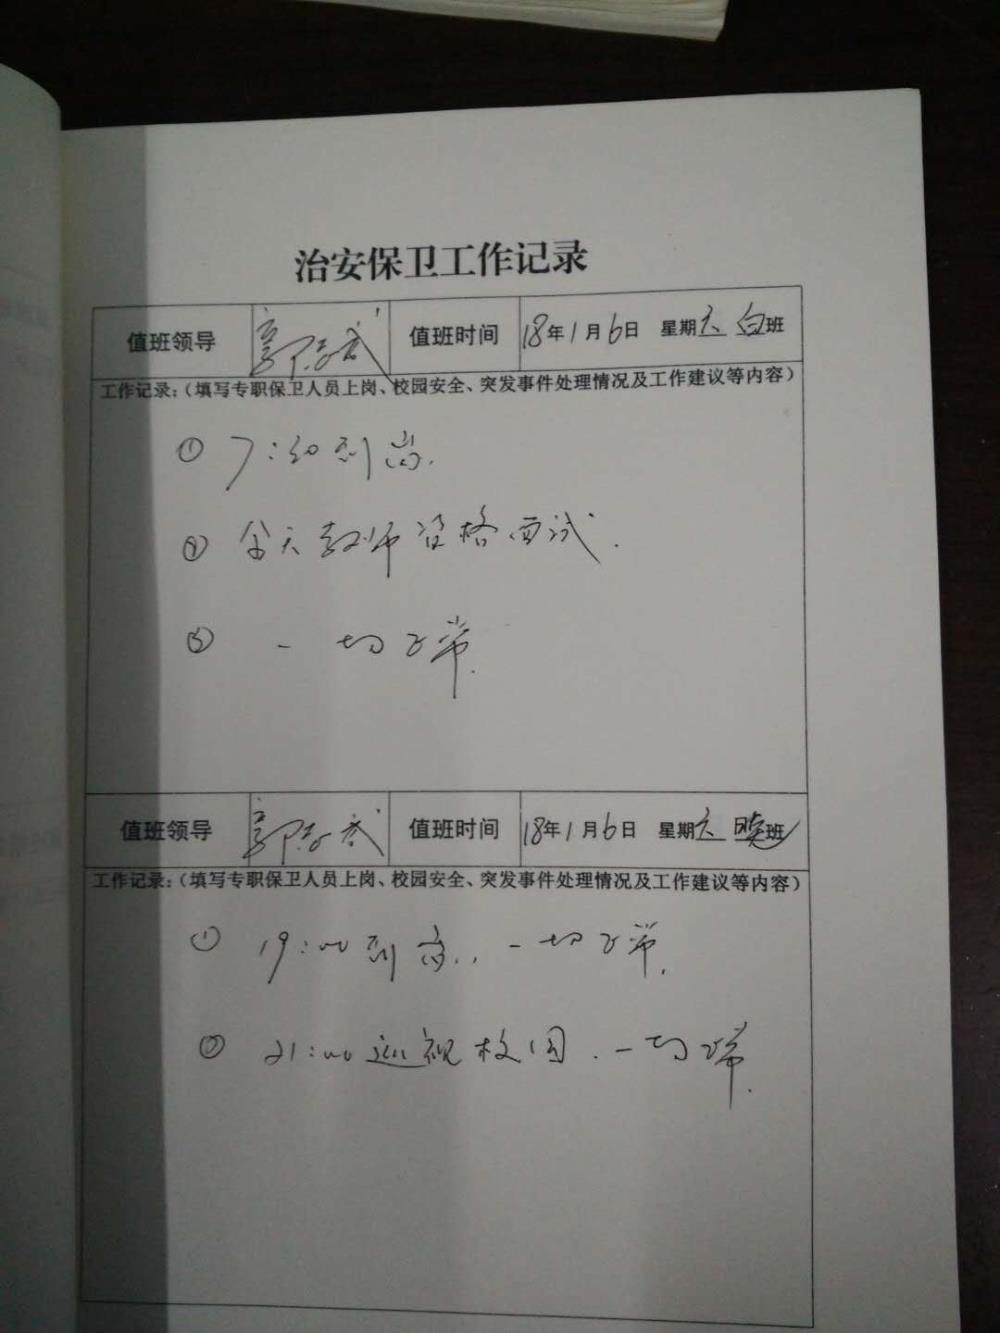 治安保卫工作记录
值班领导 郭 武 值班时间 18年1月6日 星期六 白班
工作记录:(填写专职保卫人员上岗、校园安全、突发事件处理情况及工作建议等内容)
① 7:30到岗.
② 今天教师资格面试.
③ 一切正常.
值班领导 郭 武 值班时间 18年1月6日 星期六 晚班
工作记录:(填写专职保卫人员上岗、校园安全、突发事件处理情况及工作建议等内容)
① 19:00到岗., 一切正常.
② 21:00巡视校园. 一切正常.